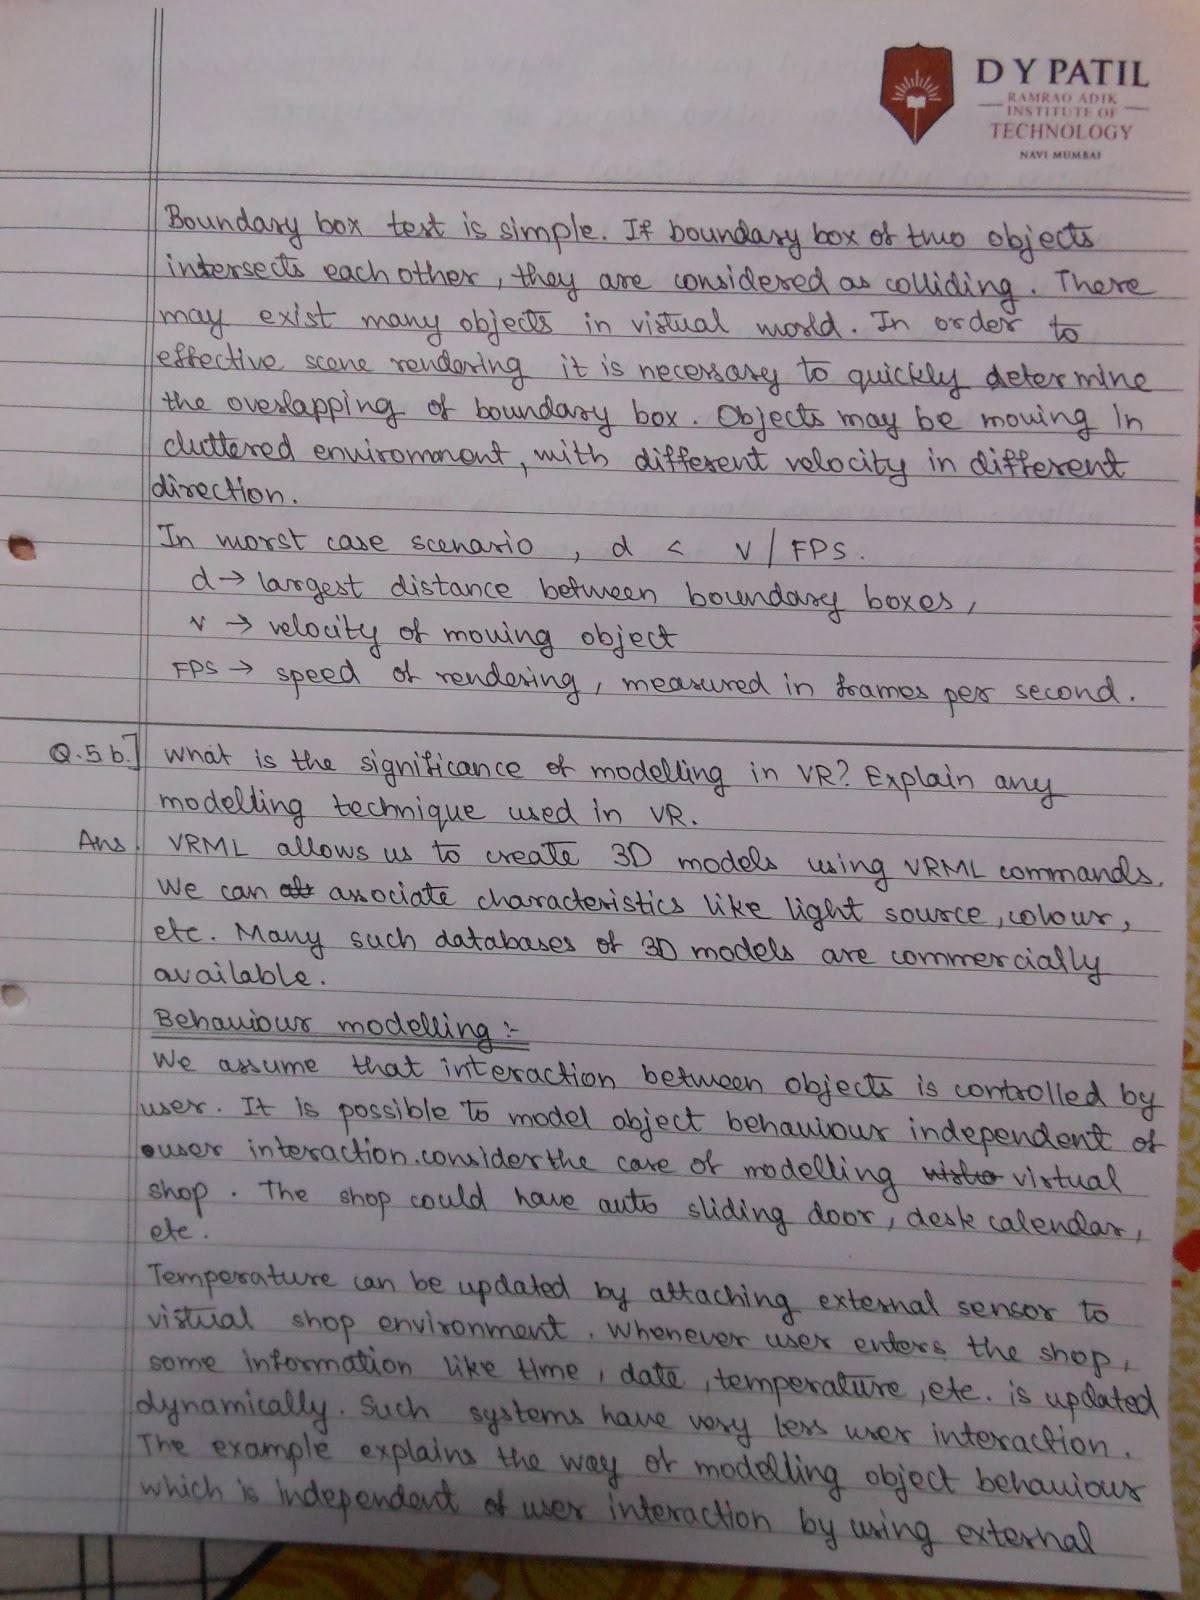 D Y PATIL
RAMRAO ADIK
INSTITUTE OF
TECHNOLOGY
NAVI MUMBAI
Boundary box test is simple. If boundary box of two objects
intersects each other, they are considered as colliding. There
may exist many objects in virtual world. In order to
effective scene rendering it is necessary to quickly determine
the overlapping of boundary box. Objects may be moving in
cluttered environment, with different velocity in different
direction.
In worst case scenario, d < v / FPS.
d → largest distance between boundary boxes,
v → velocity of moving object
FPS → speed of rendering, measured in frames per second.
Q.5 b.] What is the significance of modelling in VR? Explain any
modelling technique used in VR.
Ans. VRML allows us to create 3D models using VRML commands.
We can associate characteristics like light source, colour,
etc. Many such databases of 3D models are commercially
available.
Behaviour modelling :-
We assume that interaction between objects is controlled by
user. It is possible to model object behaviour independent of
user interaction. consider the case of modelling virtual
shop. The shop could have auto sliding door, desk calendar,
etc.
Temperature can be updated by attaching external sensor to
virtual shop environment. Whenever user enters the shop,
some information like time, date, temperature, etc. is updated
dynamically. Such systems have very less user interaction.
The example explains the way of modelling object behaviour
which is independent of user interaction by using external